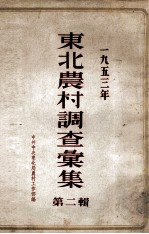 一九五三年
東北農村調查彙集
第二輯
中共中央東北局農村工作部編